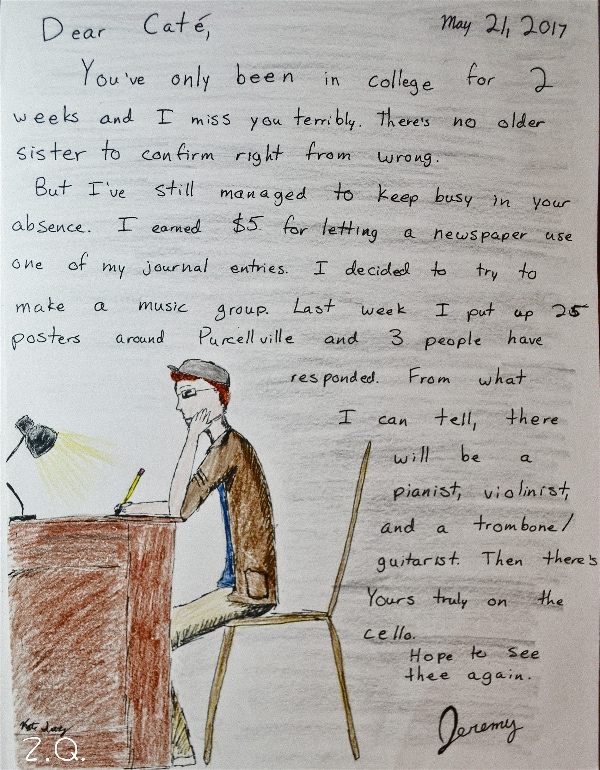 Dear Caté,
May 21, 2017
You've only been in college for 2
weeks and I miss you terribly. There's no older
sister to confirm right from wrong.
But I've still managed to keep busy in your
absence. I earned $5 for letting a newspaper use
one of my journal entries. I decided to try to
make a music group. Last week I put up 25
posters around Purcellville and 3 people have
responded. From what
I can tell, there
will be a
pianist, violinist,
and a trombone/
guitarist. Then there's
Yours truly on the
cello.
Hope to see
thee again.
Jeremy
Z.Q.